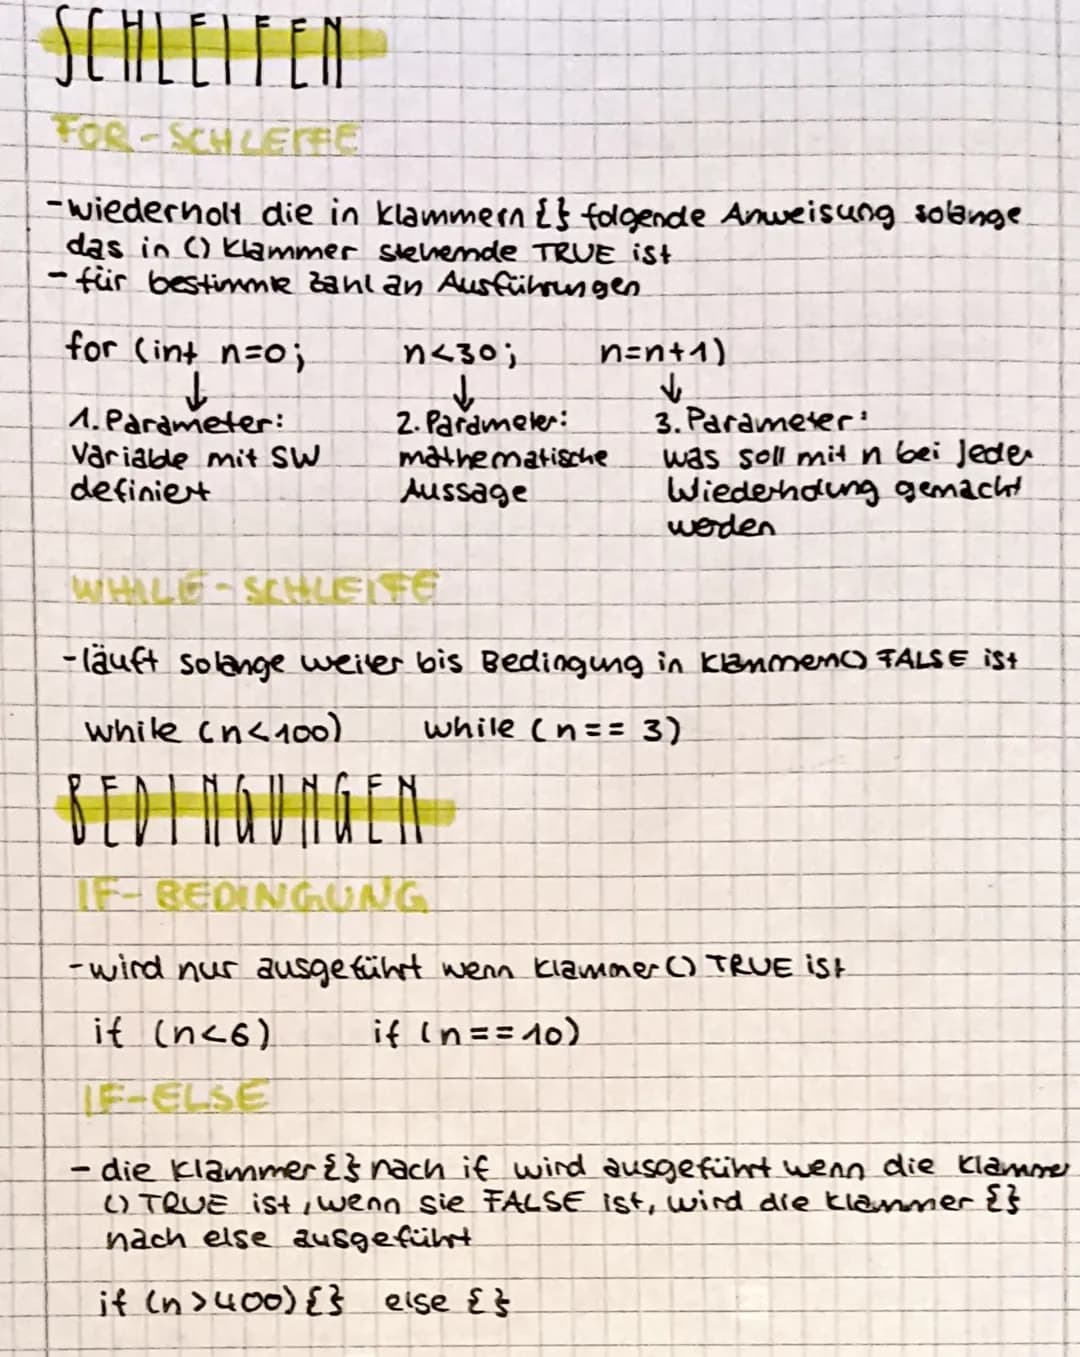 SCHLEIFEN
FOR-SCHLEIFE
-wiederholt die in Klammern {} folgende Anweisung solange
das in () Klammer stehende TRUE ist
- für bestimmte Zahl an Ausführungen
for (int n=0; n<30; n=n+1)
↓ ↓ ↓
1. Parameter: 2. Parameter: 3. Parameter:
Variable mit SW mathematische was soll mit n bei jeder
definiert Aussage Wiederholung gemacht
werden
WHILE-SCHLEIFE
-läuft solange weiter bis Bedingung in Klammern() FALSE ist
while (n<100) while (n== 3)
BEDINGUNGEN
IF-BEDINGUNG
-wird nur ausgeführt wenn Klammer () TRUE ist
if (n<6) if (n==10)
IF-ELSE
- die Klammer {} nach if wird ausgeführt wenn die Klammer
() TRUE ist, wenn sie FALSE ist, wird die Klammer {}
nach else ausgeführt
if (n>400) {} else {}